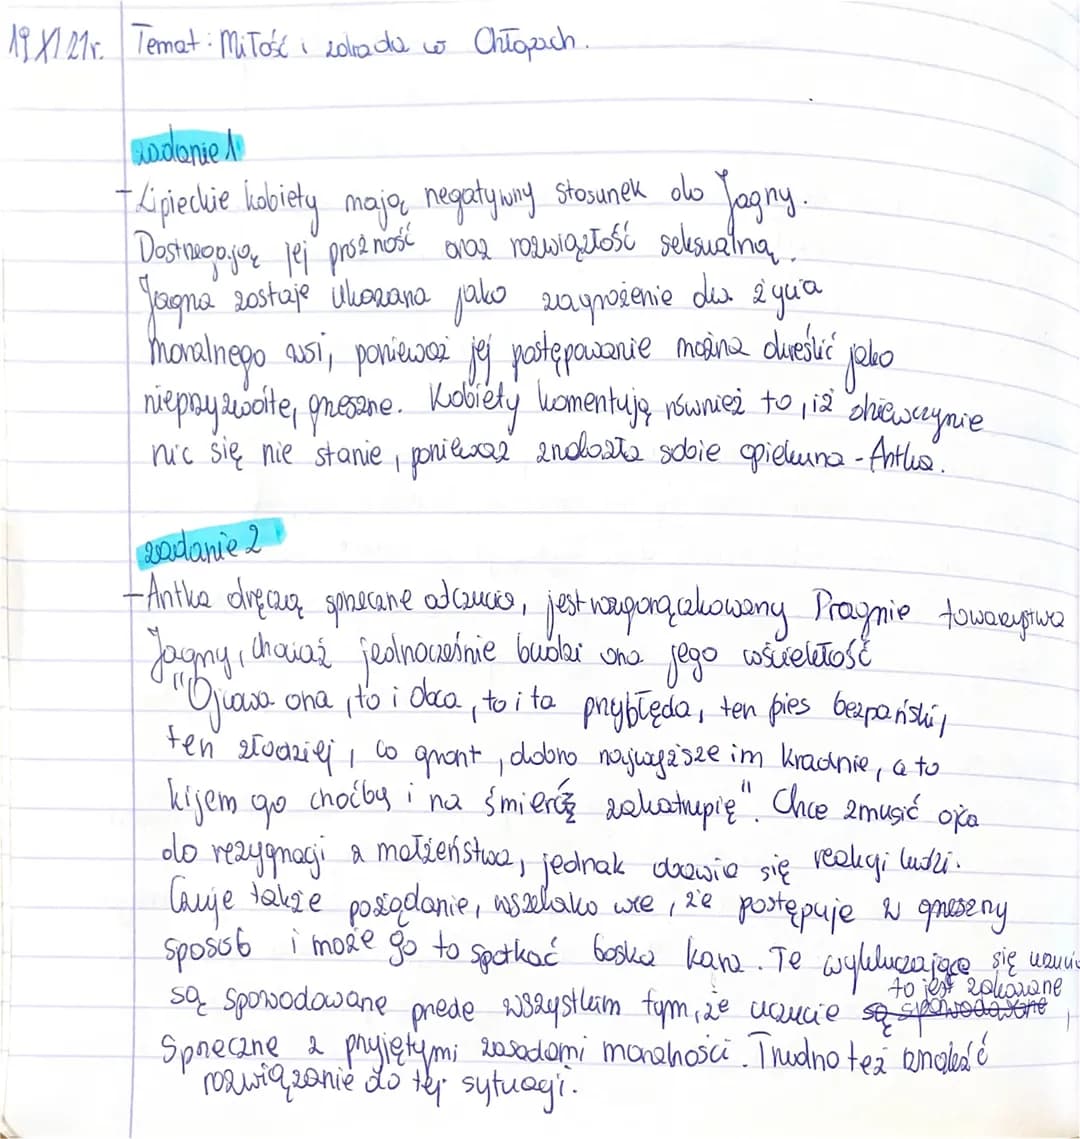 19 XI 21r. Temat: Miłość i zdrada w Chłopach.
zadanie 1
- Lipieckie kobiety mają negatywny stosunek do Jagny.
Dostrzegają jej próżność oraz rozwiązłość seksualną.
Jagna zostaje ukazana jako zagrożenie dla życia
moralnego wsi, ponieważ jej postępowanie można określić jako
nieprzyzwoite, grzeszne. Kobiety komentują również to, iż dziewczynie
nic się nie stanie, ponieważ znalazła sobie opiekuna - Antka.
zadanie 2
- Antka dręczą sprzeczne odczucia, jest rozgorączkowany Pragnie towarzystwa
Jagny, chociaż jednocześnie budzi ona jego wściekłość
"Ojcowa ona, to i obca, to i ta przybłęda, ten pies bezpański,
ten złodziej, co grunt, dobro najwyższe im kradnie, a to
kijem go choćby i na śmierć zakatrupię". Chce zmusić ojca
do rezygnacji z małżeństwa, jednak obawia się reakcji ludzi.
Czuje także pożądanie, wszelako wie, że postępuje w grzeszny
sposób i może go to spotkać boska kara. Te wykluczające się uczucia
są spowodowane przede wszystkim tym, że uczucie są spowodowane to jest zakazane,
Sprzeczne z przyjętymi zasadami moralności. Trudno też znaleźć
rozwiązanie do tej sytuacji.